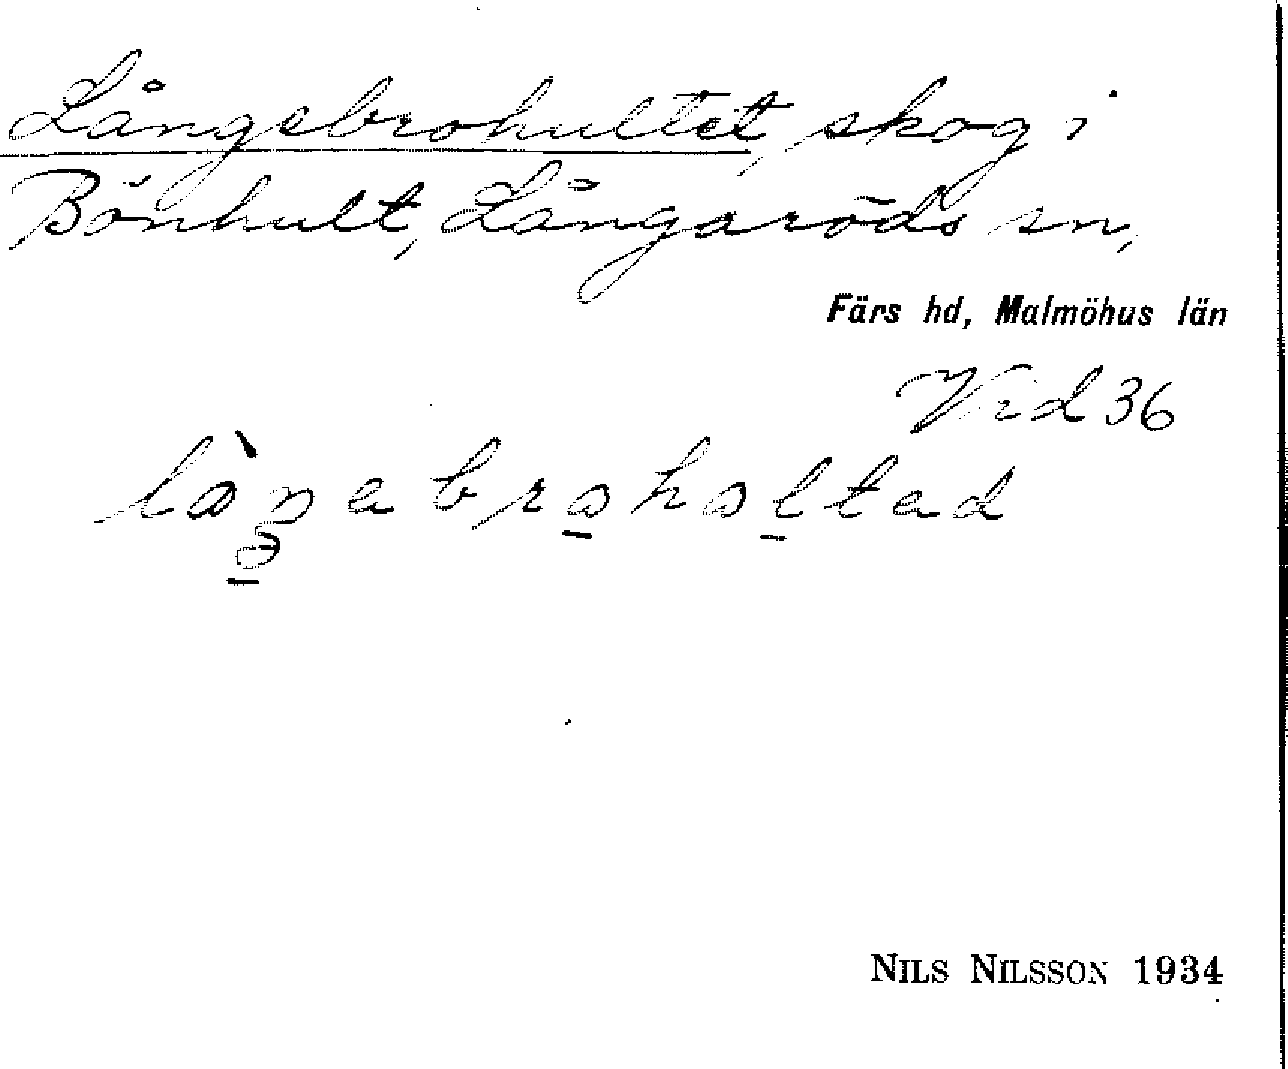 Långebrohultet, skog i
Bönhult, Långaröds sn,
Färs hd, Malmöhus län
Vrd 36
NILS NILSSON 1934